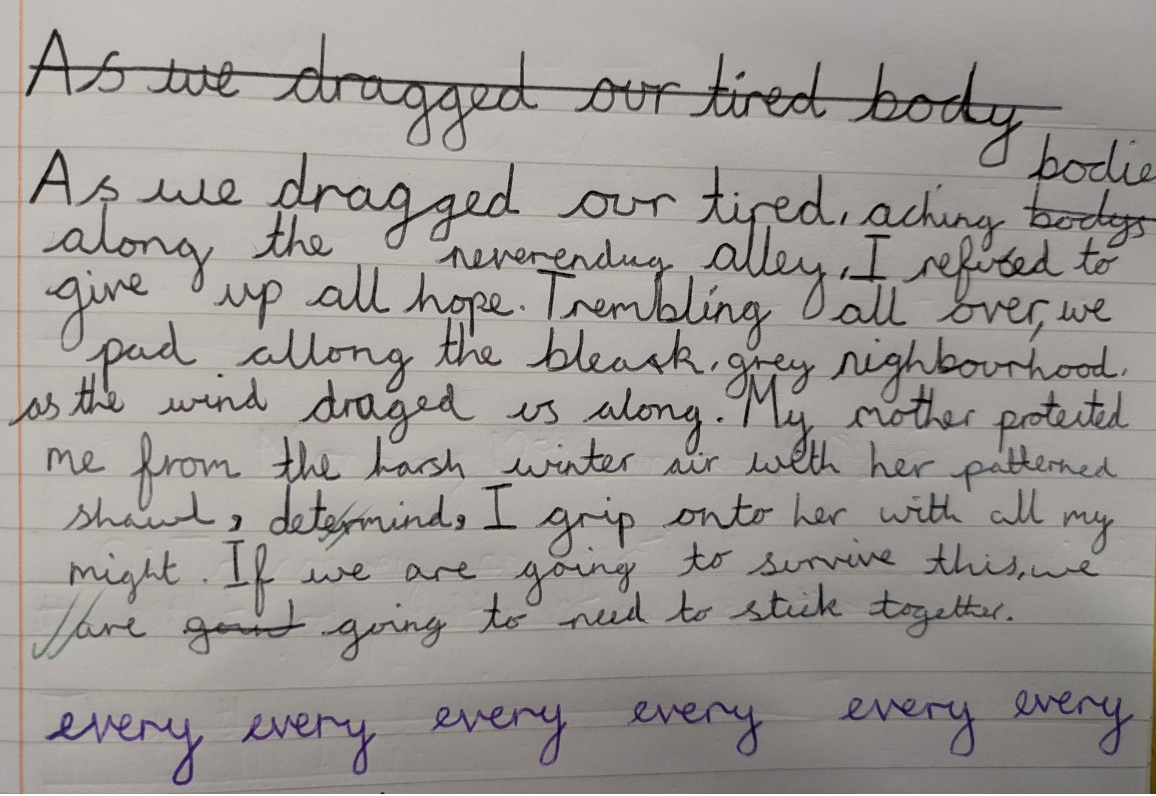 As we dragged our tired body
bodie
As we dragged our tired, aching bodys
along the neverending alley, I refused to
give up all hope. Trembling all over, we
pad allong the bleak, grey nighbourhood,
as the wind draged us along. My mother protected
me from the harsh winter air with her patterned
shawl, determind, I grip onto her with all my
might. If we are going to survive this, we
are going to need to stick together.
every every every every every every